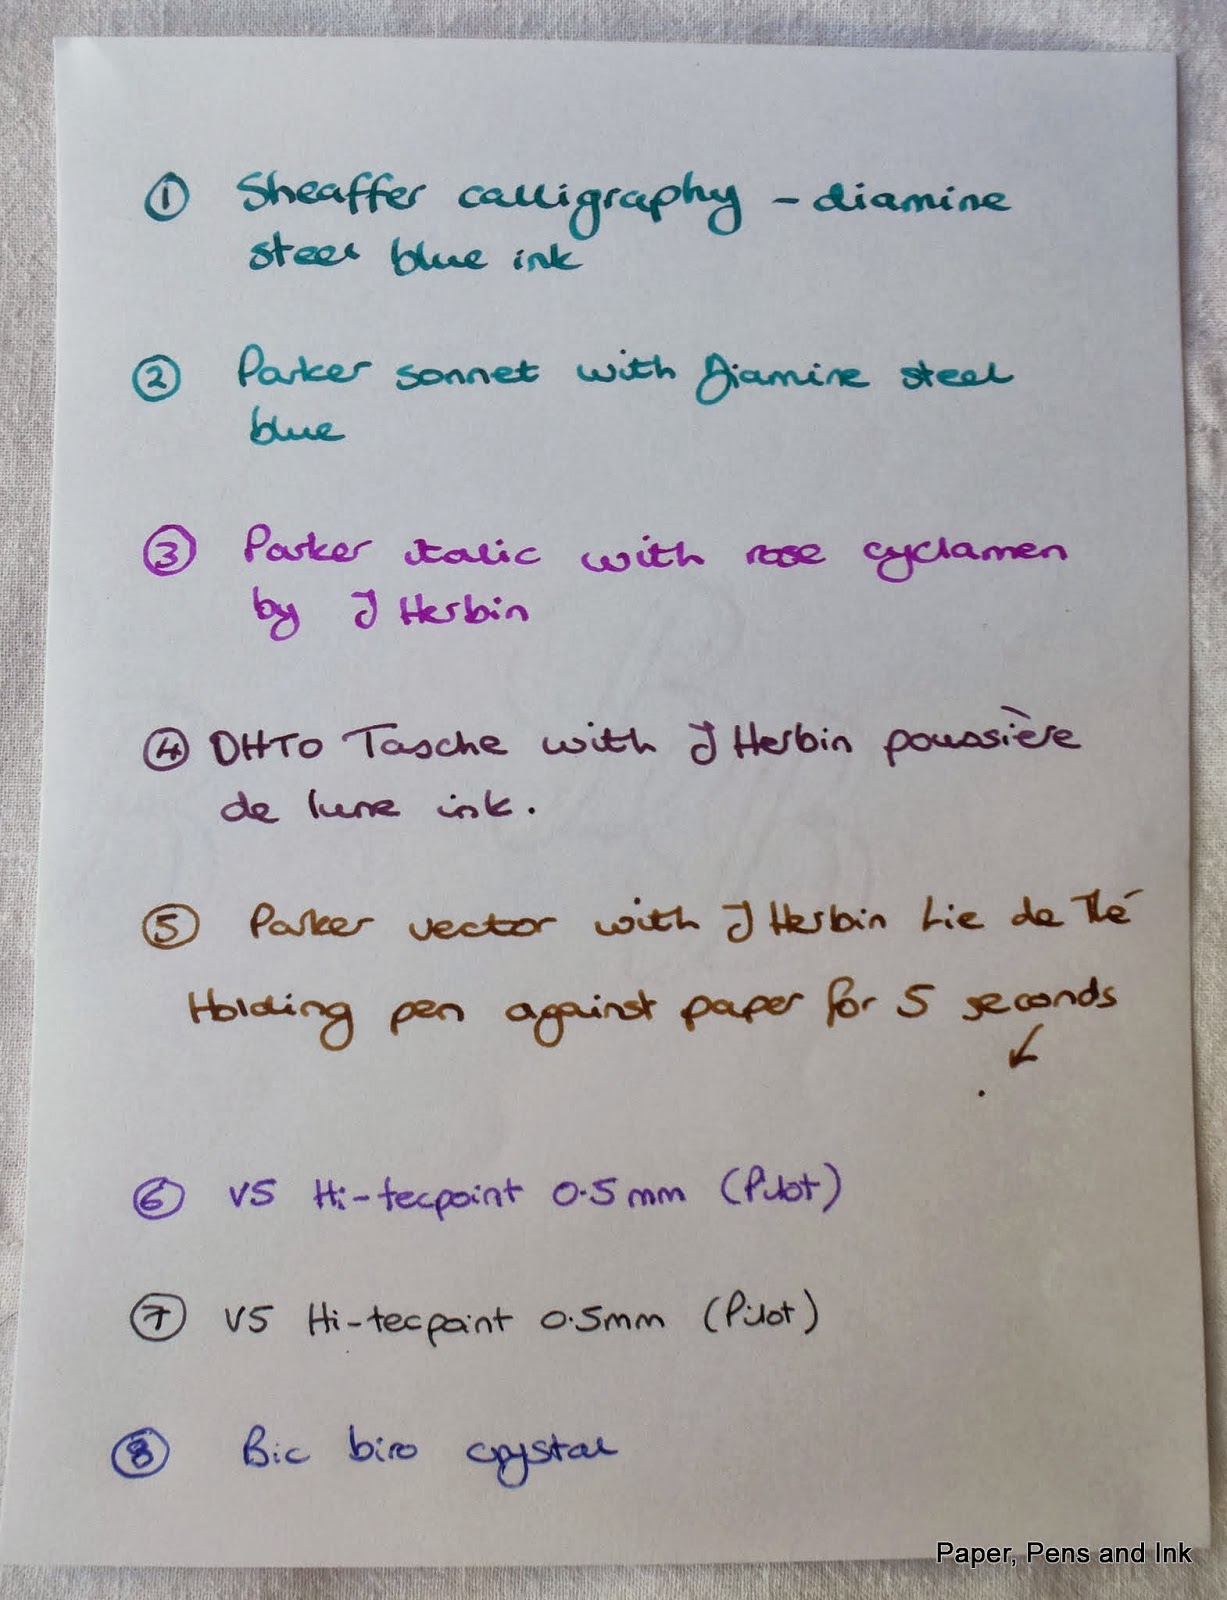 ① Sheaffer calligraphy - diamine
steel blue ink
② Parker sonnet with Diamine steel
blue
③ Parker italic with rose cyclamen
by J Herbin
④ OHTO Tasche with J Herbin poussière
de lune ink.
⑤ Parker vector with J Herbin Lie de Thé
Holding pen against paper for 5 seconds
⑥ V5 Hi-tecpoint 0.5mm (Pilot)
⑦ V5 Hi-tecpoint 0.5mm (Pilot)
⑧ Bic biro crystal
Paper, Pens and Ink